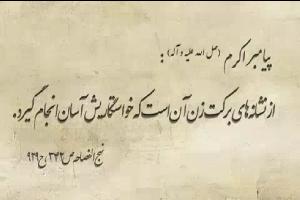 پیامبر اکرم (صلی الله علیه و آله) :
از نشانه های برکت زن آن است که خواستگاریش آسان انجام گیرد.
نهج الفصاحه ص ۳۴۲ ، ح ۹۲۹